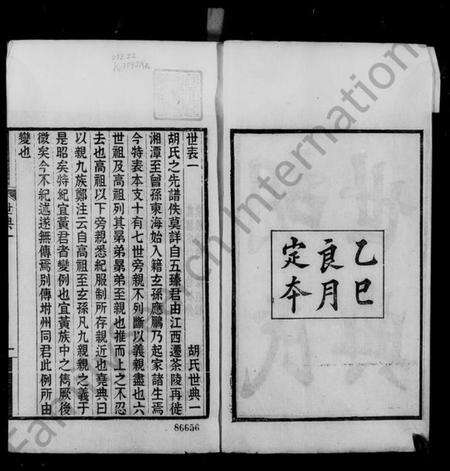 乙巳
良月
定本
胡氏世典一
世表一
胡氏之先譜佚莫詳自五臻君由江西遷茶陵再徙
湘潭至曾孫東海始入籍玄孫應鵬乃起家諸生焉
今特表本支十有七世旁親不列斷以義親盡也六
世祖及高祖列其晜弟晜弟至親也推而上之不忍
去也高祖以下旁親悉紀服制所存親近也堯典曰
以親九族鄭注云自高祖至玄孫凡九親親之義于
是昭矣特紀宜黃君者變例也宜黃族中之儁厥後
徵矣今不紀述遂無傳焉別傳坿州同君此例所由
變也
世典一
一
86656